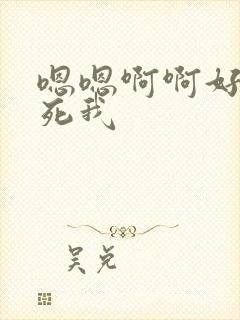 嗯嗯啊啊好
死我
吴兑